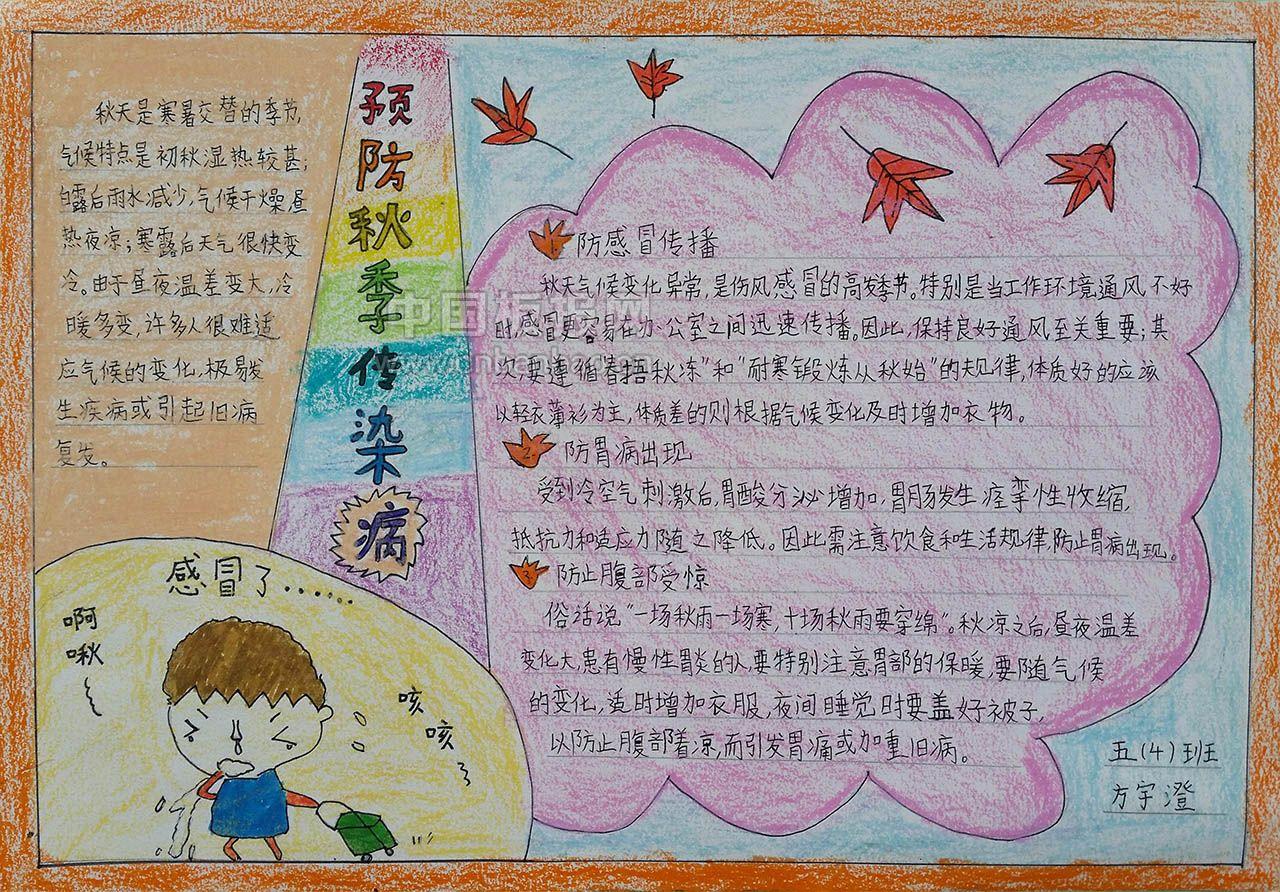 秋天是寒暑交替的季节,
气候特点是初秋湿热较甚;
白露后雨水减少,气候干燥昼
热夜凉;寒露后天气很快变
冷。由于昼夜温差变大,冷
暖多变,许多人很难适
应气候的变化,极易发
生疾病或引起旧病
复发。
预防秋季传染病
中国板报网
1. 防感冒传播
秋天气候变化异常,是伤风感冒的高发季节。特别是当工作环境通风不好
时,感冒更容易在办公室之间迅速传播。因此,保持良好通风至关重要;其
次,要遵循"春捂秋冻"和"耐寒锻炼从秋始"的规律,体质好的应该
以轻衣薄衫为主,体质差的则根据气候变化及时增加衣物。
2. 防胃病出现
受到冷空气刺激后,胃酸分泌增加,胃肠发生痉挛性收缩,
抵抗力和适应力随之降低。因此需注意饮食和生活规律,防止胃病出现。
3 防止腹部受惊
俗话说"一场秋雨一场寒,十场秋雨要穿绵"。秋凉之后,昼夜温差
变化大,患有慢性胃炎的人要特别注意胃部的保暖,要随气候
的变化,适时增加衣服,夜间睡觉时要盖好被子,
以防止腹部着凉,而引发胃痛或加重旧病。
感冒了……
啊
啾
咳
咳
五(4)班
方宇澄